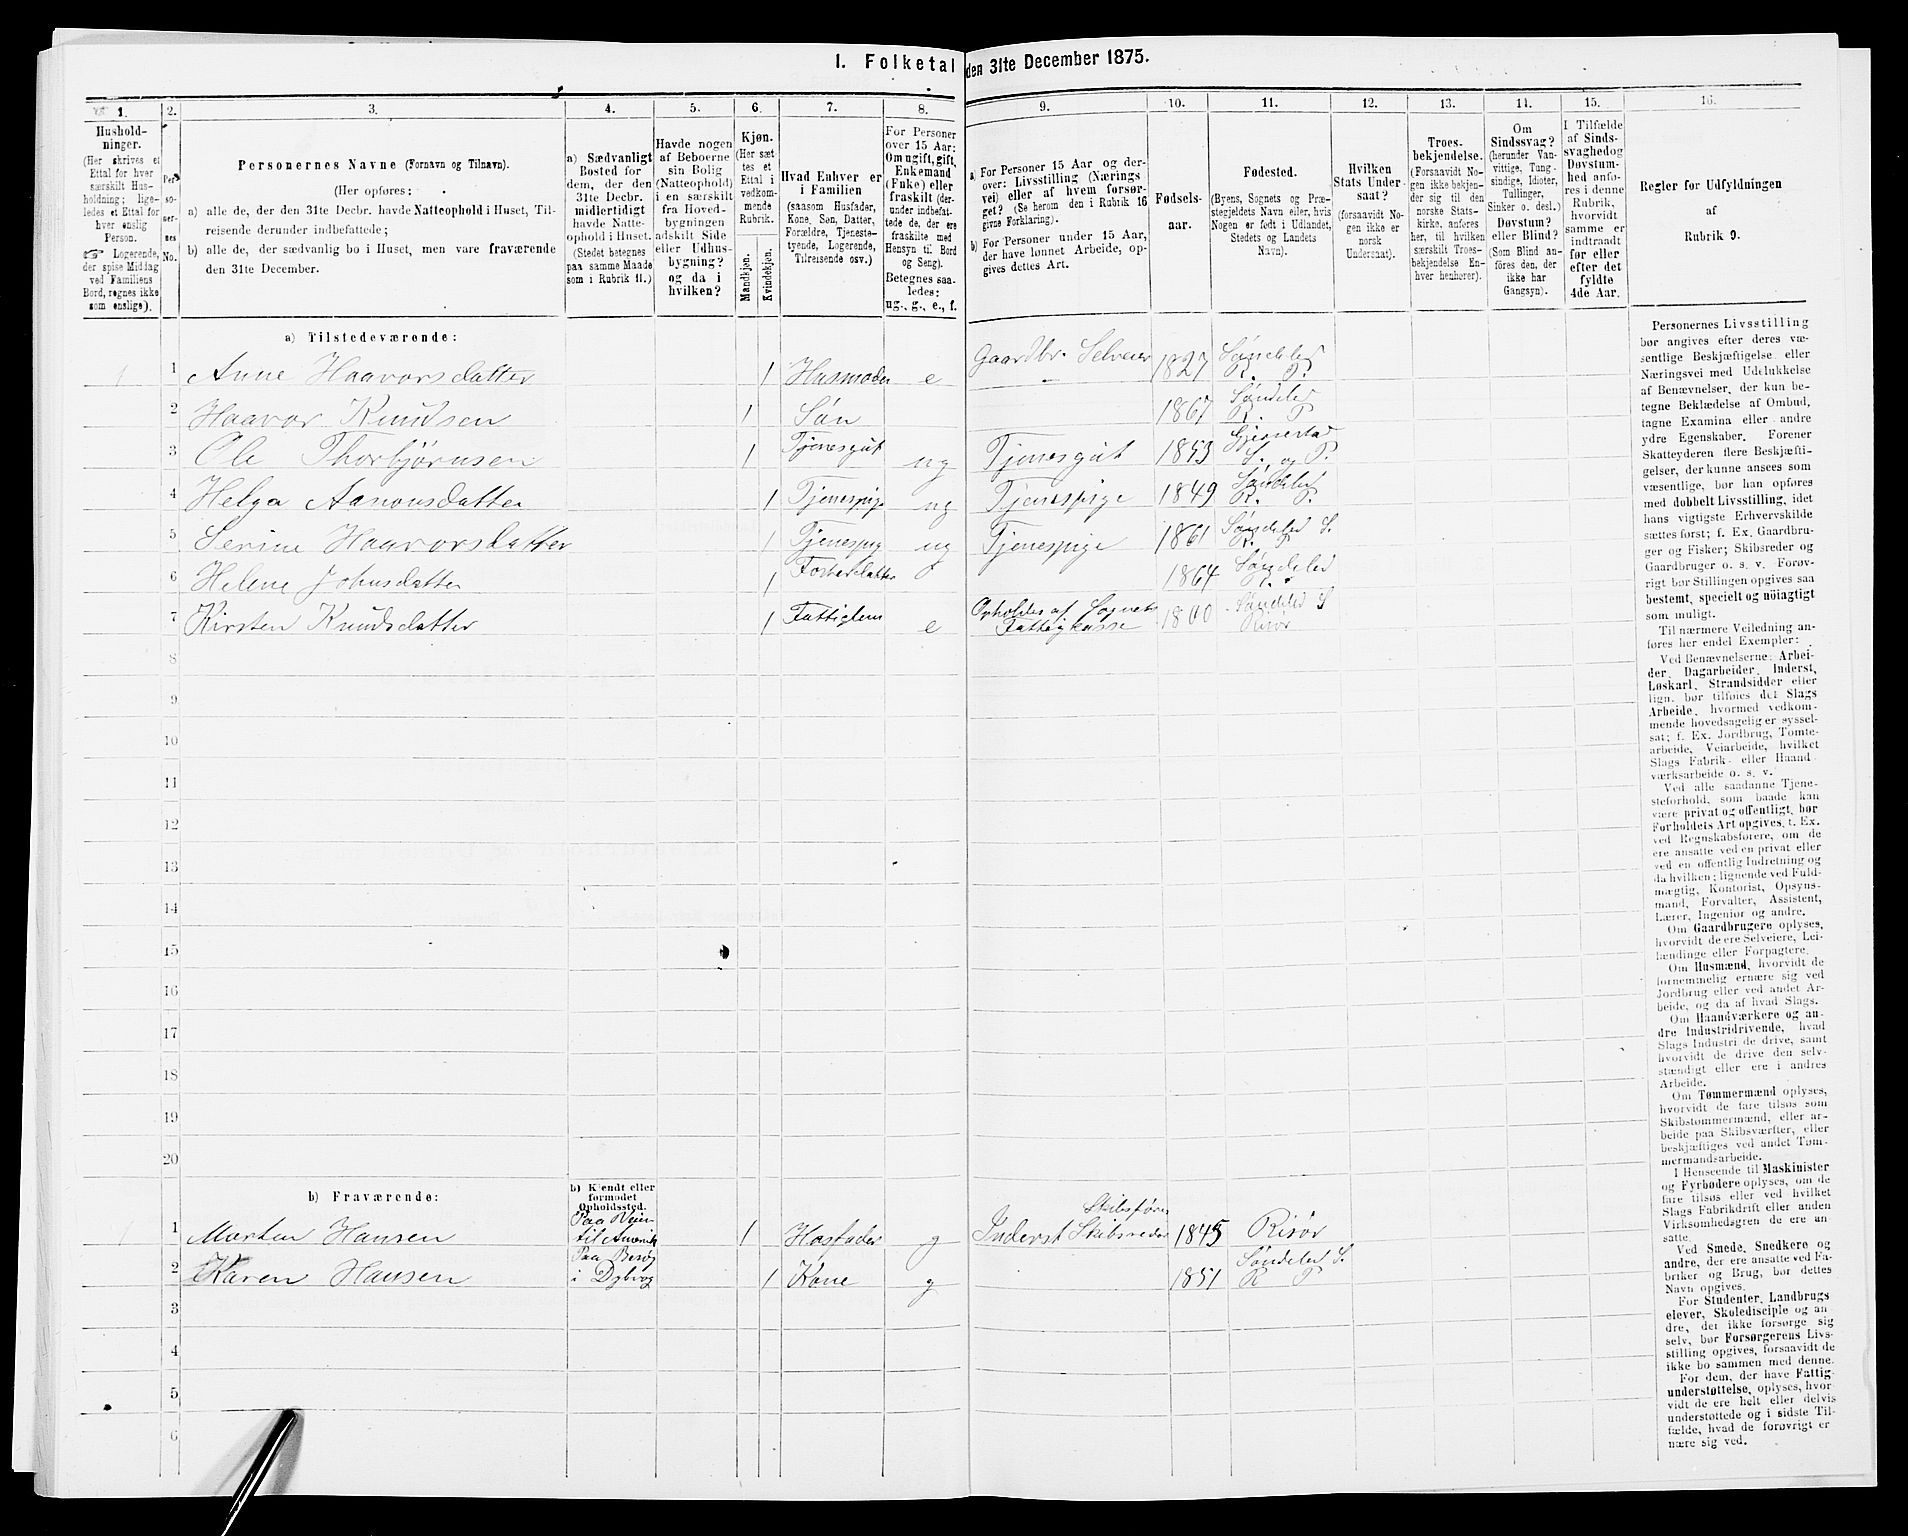 I. Folketal den 31te December 1875.
1.
Hushold-
ninger.
(Her skrives et
Ettal for hver
særskilt Hus-
holdning; lige-
ledes et Ettal for
hver enslig
Person.
☞ Logerende,
der spise Middag
ved Familiens
Bord, regnes ikke
som enslige).
2.
Per-
so-
ner-
nes
No.
3.
Personernes Navne (Fornavn og Tilnavn).
(Her opføres:
a) alle de, der den 31te Decbr. havde Natteophold i Huset, Til-
reisende derunder indbefattede;
b) alle de, der sædvanlig bo i Huset, men vare fraværende
den 31te December.
4.
a) Sædvanligt
Bosted for
dem, der den
31te Decbr.
midlertidigt
havde Natte-
ophold i Huset.
(Stedet betegnes
paa samme Maade
som i Rubrik 11.)
5.
Havde nogen
af Beboerne
sin Bolig
(Natteophold)
i en særskilt
fra Hoved-
bygningen
adskilt Side
eller Udhus-
bygning?
og da i
hvilken?
6.
Kjøn.
(Her sæt-
tes et
Ettal i
vedkom-
mende
Rubrik.
Mandkjøn.
Kvindekjøn.
7.
Hvad Enhver er
i Familien
(saasom Husfader,
Kone, Søn, Datter,
Forældre, Tjeneste-
tyende, Logerende,
Tilreisende osv.)
8.
For Personer
over 15 Aar:
Om ugift, gift,
Enkemand
(Enke) eller
fraskilt (der-
under indbefat-
tede de, der ere
fraskilte med
Hensyn til Bord
og Seng).
Betegnes saa-
ledes:
ug., g., e., f.
9.
a) For Personer 15 Aar og der-
over: Livsstilling (Nærings
vei) eller af hvem forsør-
get? (Se herom den i Rubrik 16
givne Forklaring).
b) For Personer under 15 Aar,
der have lønnet Arbeide, op-
gives dettes Art.
10.
Fødsels-
aar.
11.
Fødested.
(Byens, Sognets og Præ-
stegjeldets Navn eller, hvis
Nogen er født i Udlandet,
Stedets og Landets
Navn).
12.
Hvilken
Stats Under-
saat?
(forsaavidt No-
gen ikke er
norsk
Undersaat).
13.
Troes-
bekjendelse.
(Forsaavidt No-
gen ikke bekjen-
der sig til den
norske Stats-
kirke, anføres
her, til hvilken
særskilt Troes-
bekjendelse En-
hver henhører).
14.
Om
Sindssvag?
(herunder Van-
vittige, Tung-
sindige, Idioter,
Tullinger,
Sinker o. desl.)
Døvstum?
eller Blind?
(Som Blind an-
føres den, der
ikke har
Gangsyn).
15.
I Tilfælde
af Sinds-
svaghed og
Døvstum-
hed anfø-
res i denne
Rubrik,
hvorvidt
samme er
indtraadt
før eller
efter det
fyldte
4de Aar.
16.
Regler for Udfyldningen
af
Rubrik 9.
a) Tilstedeværende:
1 1 Anne Haavorsdatter 1 Husmoder e Gaardbr. Selveier 1827 Søndeled R. P.
2 Haavor Knudsen 1 Søn 1867 Søndeled R. P
3 Ole Thorbjørnsen 1 Tjenesgut ug Tjenesgut 1853 Gjerrestad S. og P.
4 Helga Aanonsdatter 1 Tjenespige ug Tjenespige 1849 Søndeled R. P.
5 Serine Haavorsdatter 1 Tjenespig ug Tjenespige 1861 Søndeled S. R. P
6 Helene Johnsdatter 1 Fosterdatter 1864 Søndeled
7 Kirsten Knudsdatter 1 Fattiglem e Opholdes af Sognets Fattigkasse 1800 Søndeled S Risør
8
9
10
11
12
13
14
15
16
17
18
19
20
b) Fraværende:
b) Kjendt eller
formodet
Opholdssted.
1 1 Morten Hansen Paa Veien til Amerik 1 Hosfader g Inderst Skibsreder Skibsfører 1845 Risør
2 Karen Hansen Paa Besøg i Dybvog 1 Kone g 1851 Søndeled S. R P
3
4
5
6
Personernes Livsstilling
bør angives efter deres væ-
sentlige Beskjæftigelse eller
Næringsvei med Udelukkelse
af Benævnelser, der kun be-
tegne Beklædelse af Ombud,
tagne Examina eller andre
ydre Egenskaber. Forener
Skatteyderen flere Beskjæfti-
gelser, der kunne ansees som
væsentlige, bør han opføres
med dobbelt Livsstilling, idet
hans vigtigste Erhvervskilde
sættes først; f. Ex. Gaardbru-
ger og Fisker; Skibsreder og
Gaardbruger o. s. v. Forøv-
rigt bør Stillingen opgives saa
bestemt, specielt og nöiagtigt
som muligt.
Til nærmere Veiledning an-
føres her endel Exempler:
Ved Benævnelserne: Arbei-
der, Dagarbeider, Inderst,
Løskarl, Strandsidder eller
lign. bør tilføies det Slags
Arbeide, hvormed vedkom-
mende hovedsagelig er syssel-
sat; f. Ex. Jordbrug, Tomte-
arbeide, Veiarbeide, hvilket
Slags Fabrik- eller Haand-
værksarbeide o. s. v.
Ved alle saadanne Tjene-
steforhold, som baade kan
være privat og offentligt, bør
Forholdets Art opgives, t. Ex.
ved Regnskabsførere, om de
ere ansatte ved en privat eller
ved en offentlig Indretning og
da hvilken; lignende ved Fuld-
mægtig, Kontorist, Opsyns-
mand, Forvalter, Assistent,
Lærer, Ingeniør og andre.
Om Gaardbrugere oplyses,
hvorvidt de ere Selveiere, Lei-
lændinge eller Forpagtere.
Om Husmænd, hvorvidt de
fornemmelig ernære sig ved
Jordbrug eller ved andet Ar-
beide, og da af hvad Slags.
Om Haandværkere og an-
dre Industridrivende, hvad
Slags Industri de drive, samt
hvorvidt de drive den selv-
stændigt eller ere i andres
Arbeide.
Om Tømmermænd oplyses,
hvorvidt de fare tilsøs som
Skibstømmermænd, eller ar-
beide paa Skibsværfter, eller
beskjæftiges ved andet Tøm-
mermandsarbeide.
I Henseende til Maskinister
og Fyrbødere oplyses, om de
fare tilsøs eller ved hvilket
Slags Fabrikdrift eller anden
Virksomhedsgren de ere an-
satte.
Ved Smede, Snedkere og
andre, der ere ansatte ved Fa-
briker og Brug, bør dettes
Navn opgives.
For Studenter, Landbrugs
elever, Skoledisciple og an
dre, der ikke forsørge sig
selv, bør Forsørgerens Livs-
stilling opgives, forsaavidt de
ikke bo sammen med denne.
For dem, der have Fattig-
understøttelse, oplyses, hvor-
vidt de ere helt eller delvis
understøttede og i sidste Til-
fælde, hvad de forøvrigt er
nære sig ved.